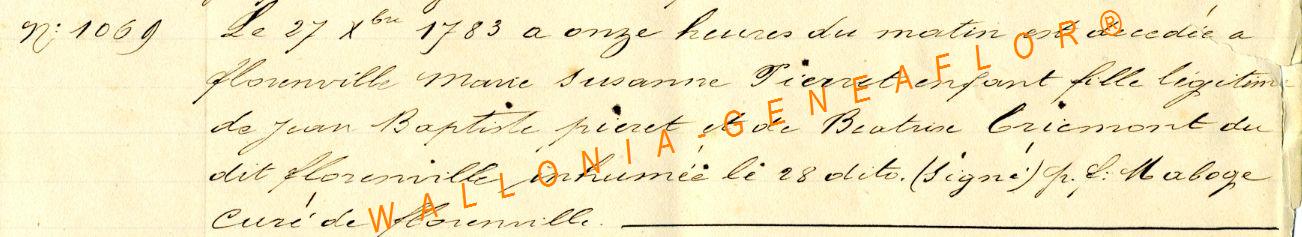 N: 1069 Le 27 Xbre 1783 a onze heures du matin est decedée a
florenville Marie Susanne Pierret enfant fille légitime
de jean Baptiste pieret et de Beatrix Criemont du
dit florenville inhumée le 28 dito. (Signé) p. f: Maboge
Curé de florenville.
WALLONIA-GENEAFLOR®